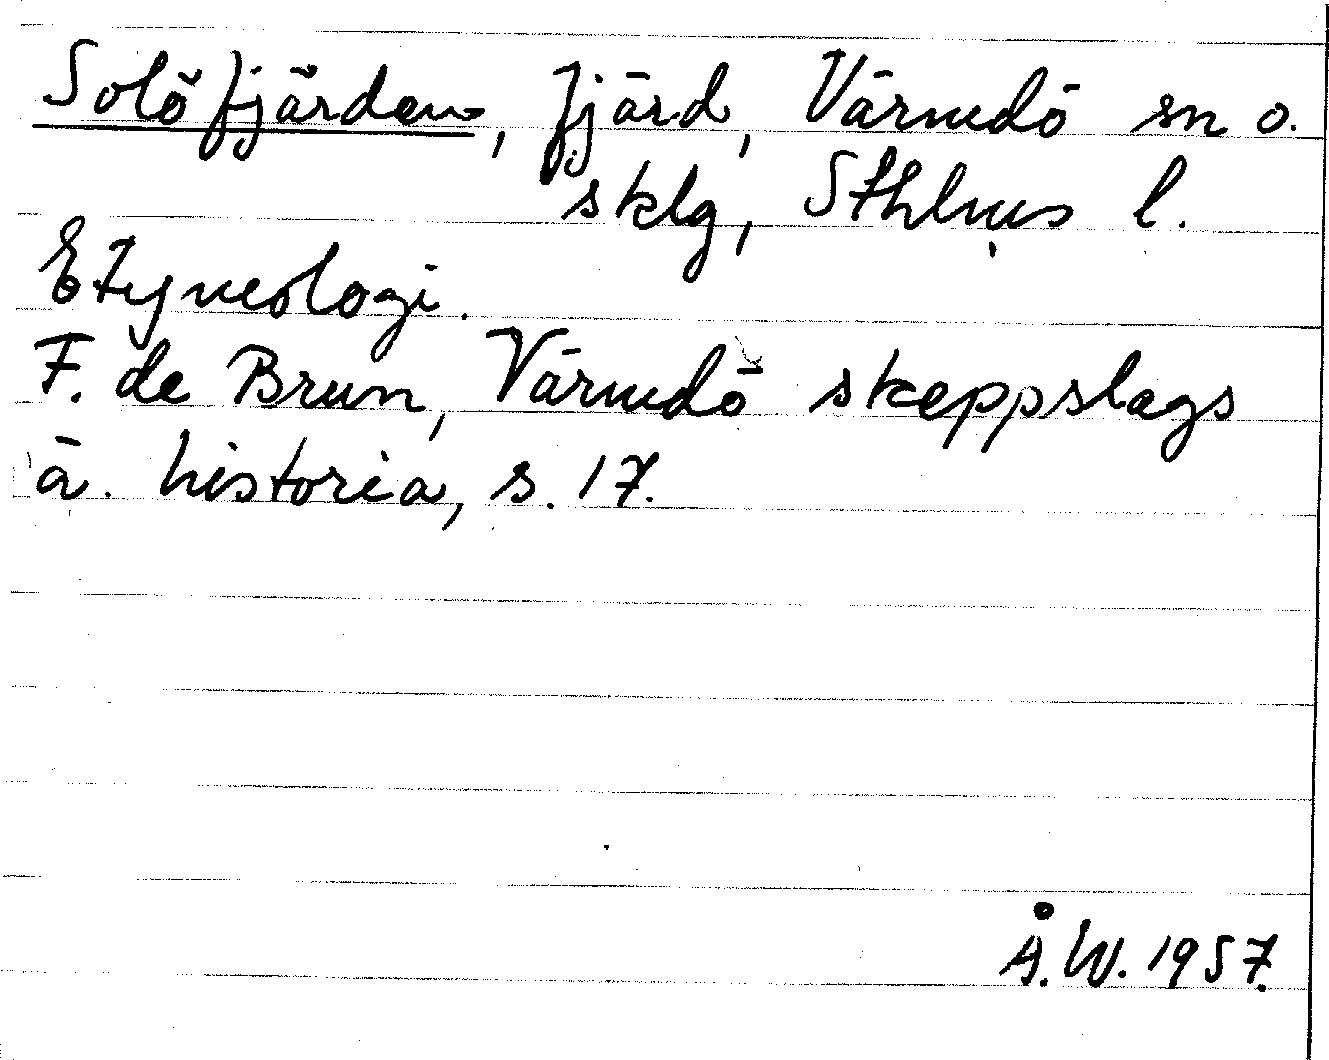 Solöfjärden, fjärd, Värmdö sn o.
sklg, Sthlms l.
Etymologi.
F. de Brun, Värmdö skeppslags
ä. historia, s. 17.
Å.W. 1957.